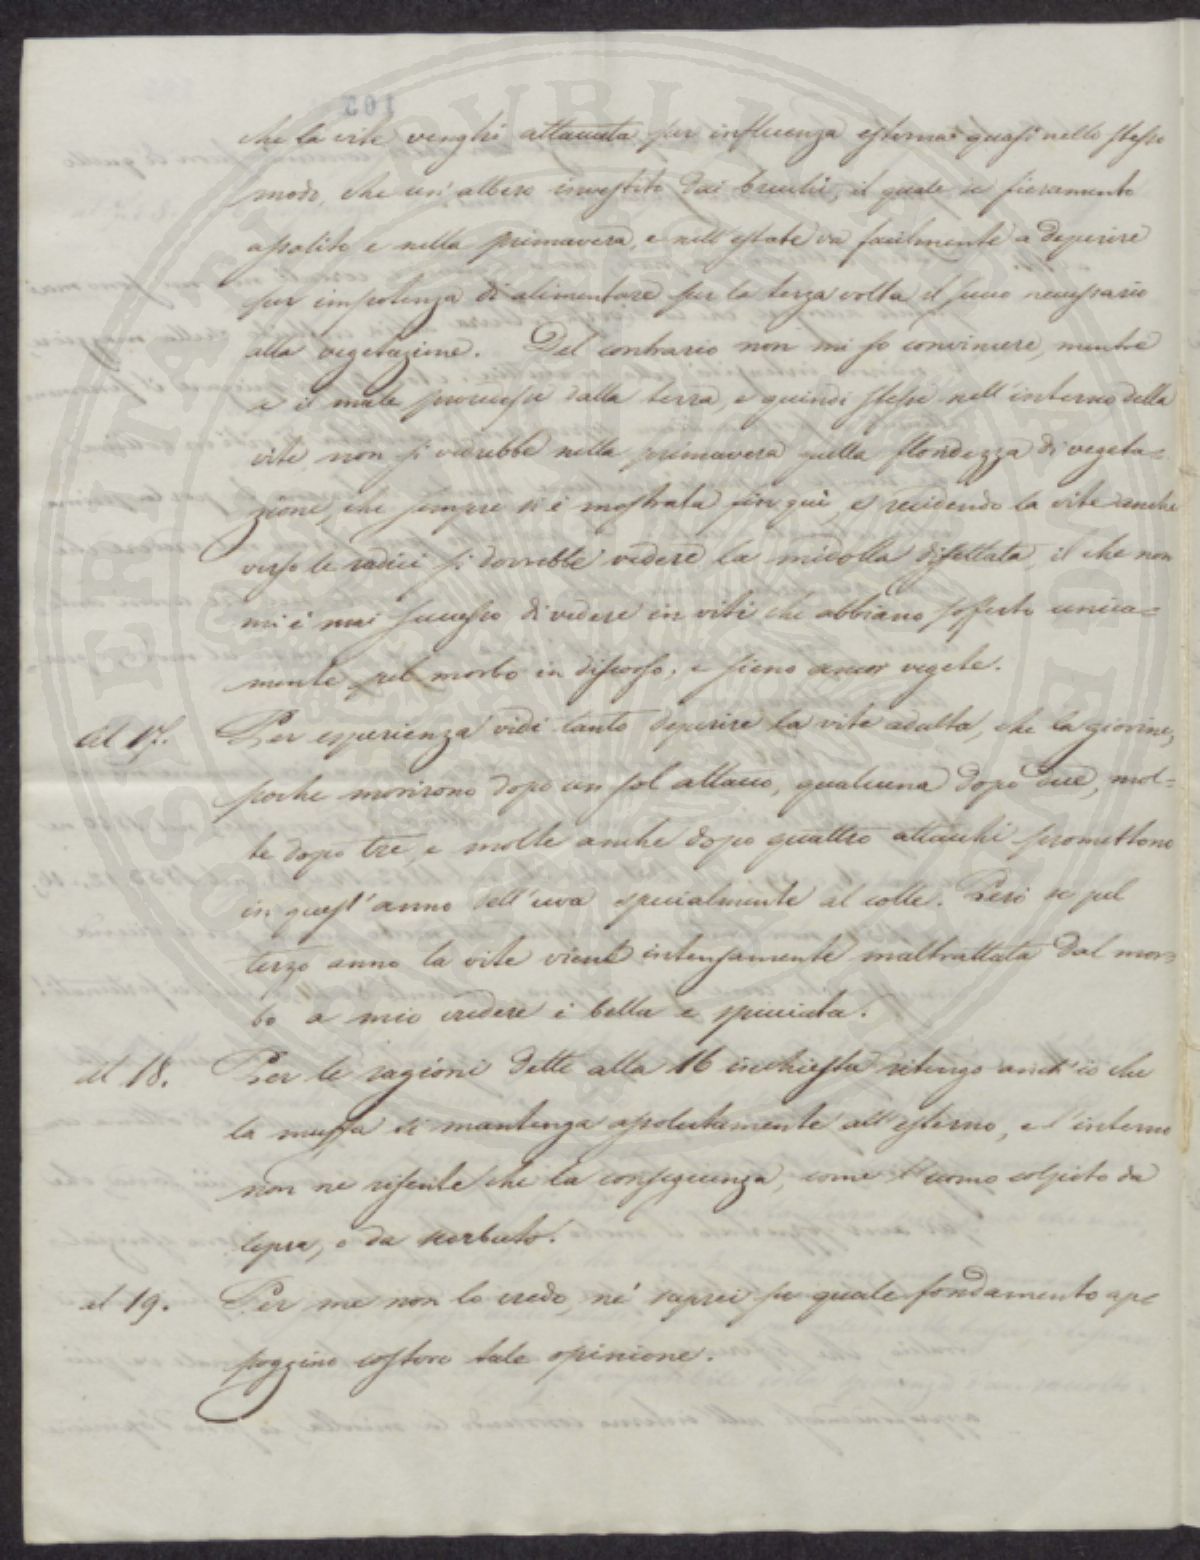 che la vite venghi attaccata per influenza esterna quasi nello stesso
modo, che un'albero investito dai bruchi, il quale se fieramente
assalito e nella primavera, e nell'estate va facilmente a deperire
per impotenza di alimentare per la terza volta il succo necessario
alla vegetazione. Del contrario non mi so convincere, mentre
se il male procedesse dalla terra, e quindi stesse nell'interno della
vite non si vedrebbe nella primavera quella floridezza di vegeta=
zione, che sempre si è mostrata fin quì, e recidendo la vite anche
verso le radici si dovrebbe vedere la midolla difettata, il che non
mi è mai successo di vedere in viti che abbiano sofferto unica=
mente pel morbo in discorso, e sieno ancor vegete.
Al 17. Per esperienza vidi tanto deperire la vite adulta, che la giovine,
poche morirono dopo un sol attacco, qualcuna dopo due, mol=
te dopo tre, e molte anche dopo quattro attacchi promettono
in quest'anno dell'uva specialmente al colle. Però se pel
terzo anno la vite viene intensamente maltrattata dal mor=
bo a mio credere è bella e spicciata.
al 18. Per le ragioni dette alla 16 inchiesta ritengo anch'io che
la muffa si mantenga assolutamente all'esterno, e l'interno
non ne risente che la conseguenza, come l'uomo colpito da
lepra, o da scorbuto.
al 19. Per me non lo credo, nè saprei su quale fondamento ap=
poggino costoro tale opinione.